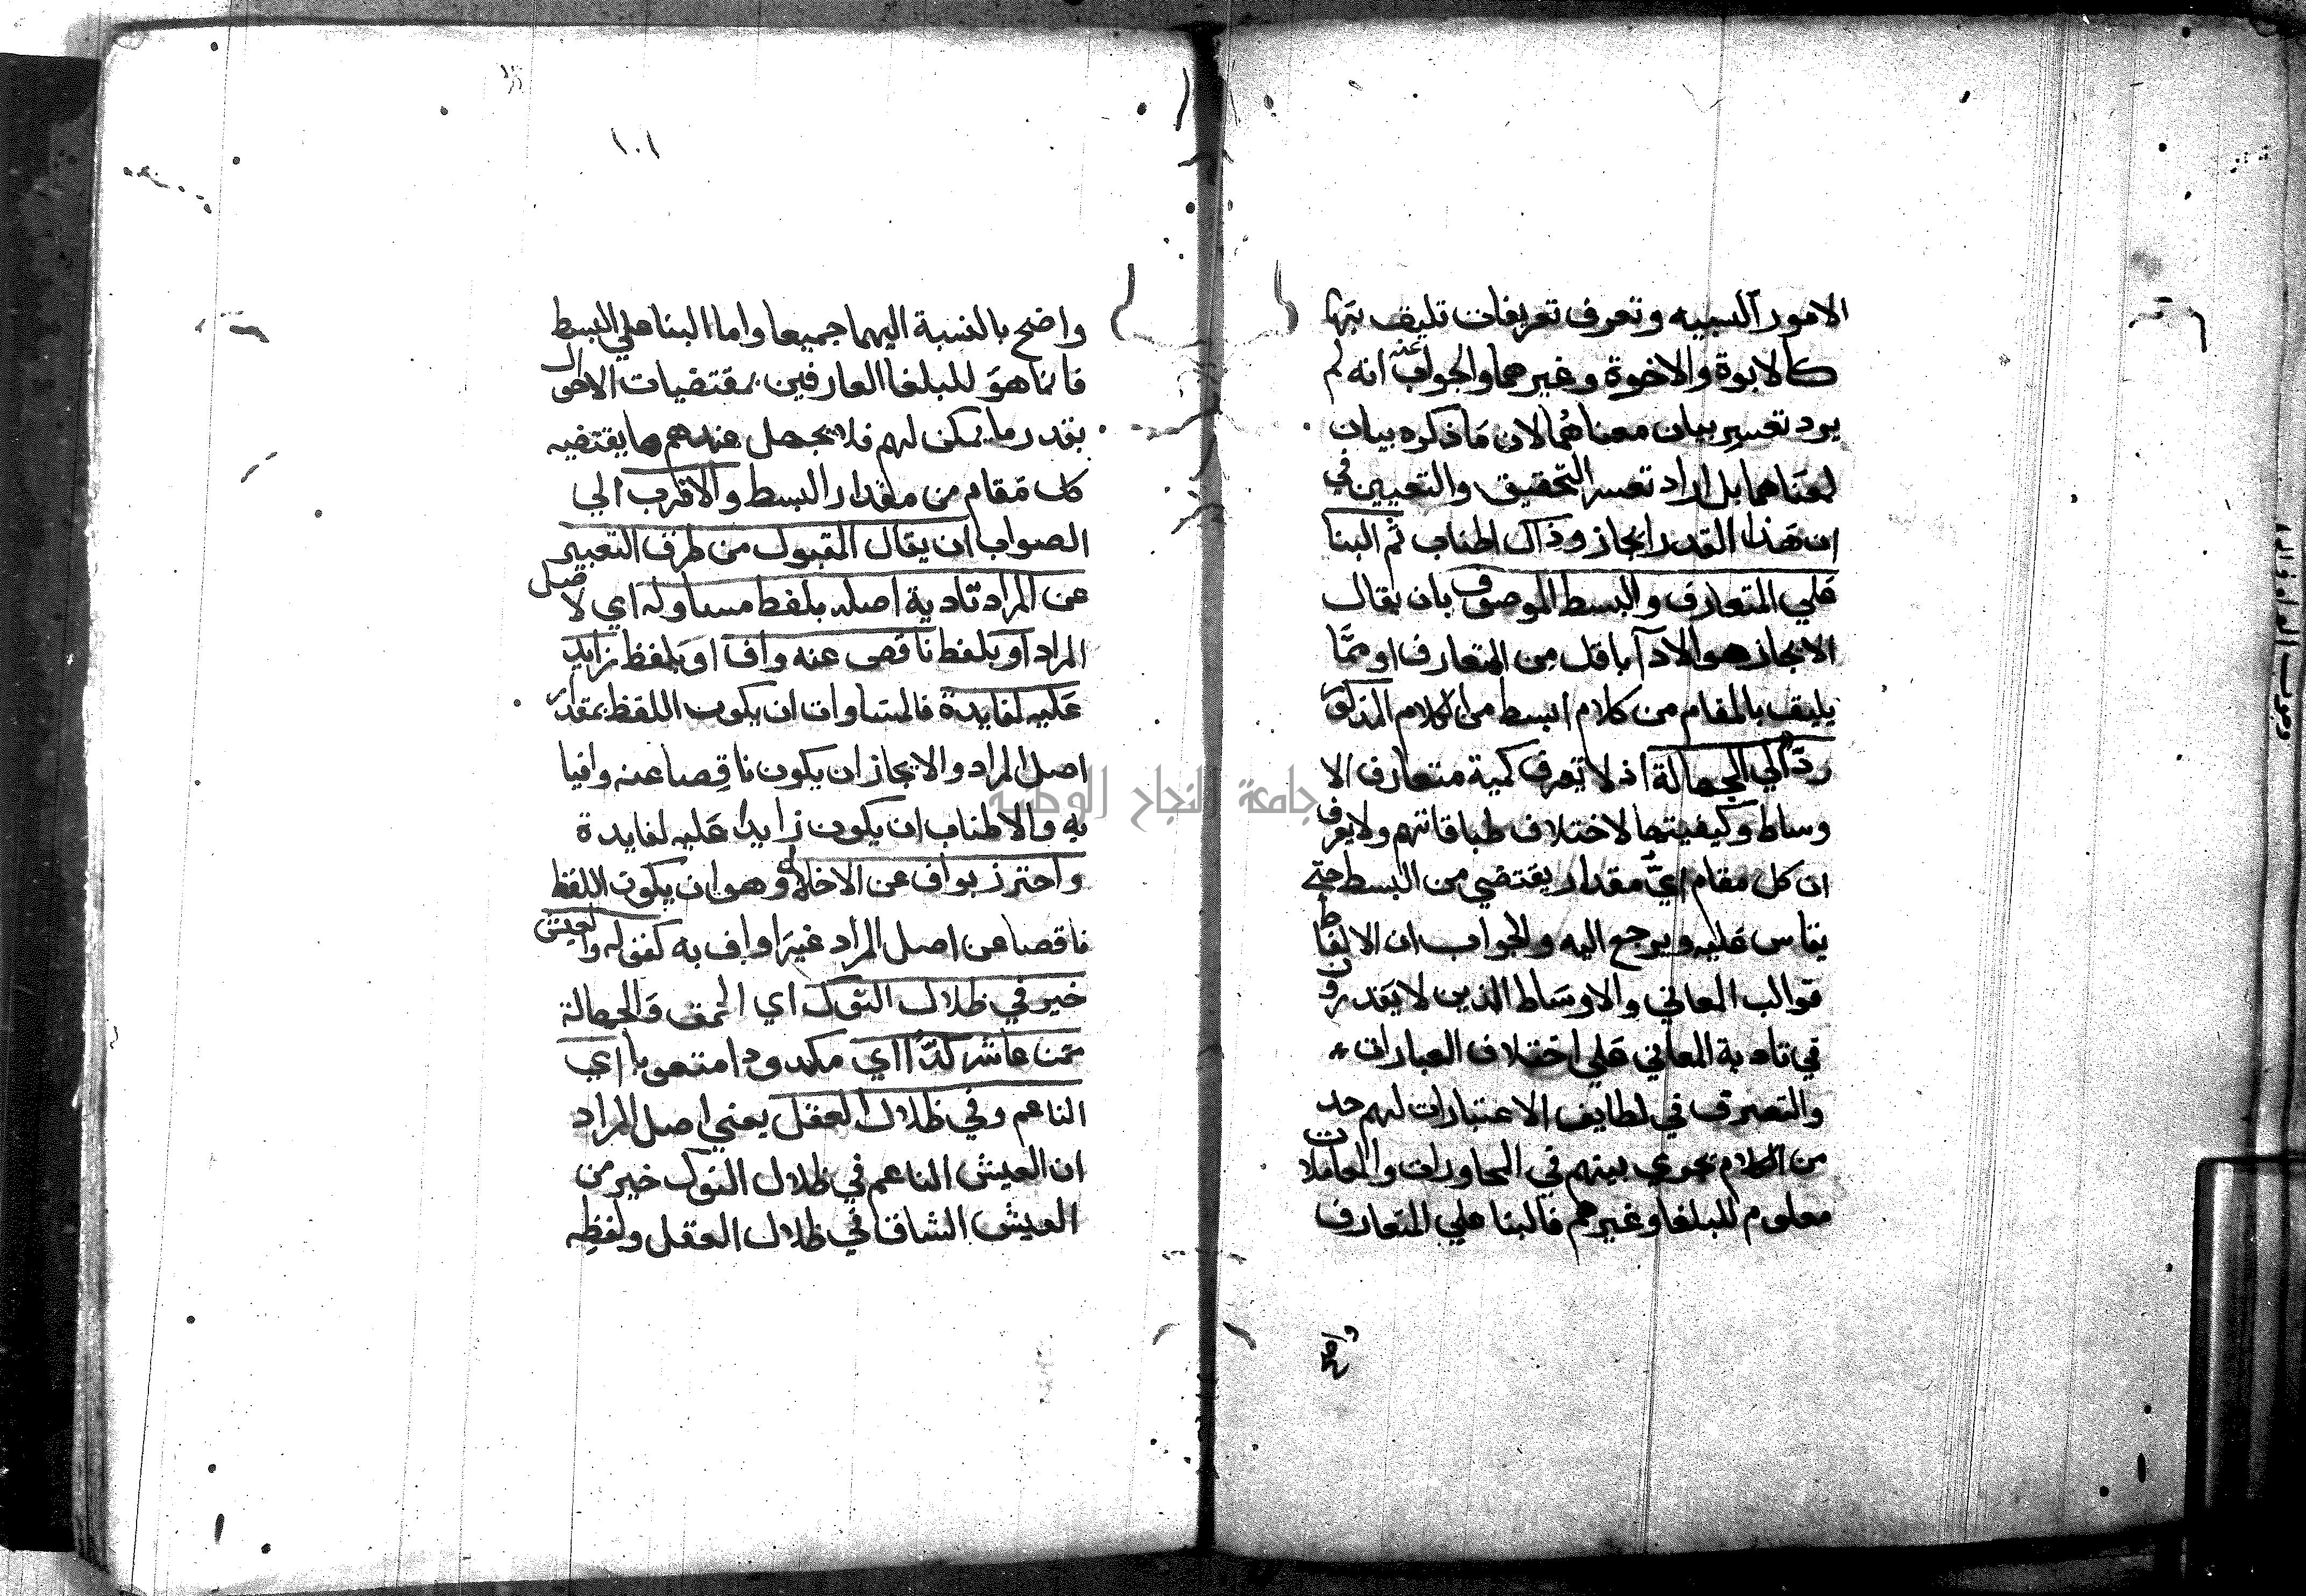 الامور النسبيه وتعرف تعريفات تليق بها
كالابوة والاخوة وغيرهما والجواب عنه انه لم
يرد تعسر بيان معناهما لان ما ذكره بيان
لمعناهما بل اراد تعسر التحقيق والتعيين في
ان هذا القدر ايجاز وذاك اطناب ثم البنا
علي المتعارف والبسط الموصوف بان يقال
الايجاز هو الادآ باقل من المتعارف او مما
يليق بالمقام من كلام ابسط من الكلام المذكور
ردّ الي الجهالة اذ لا تعرف كمية متعارف الا
وساط وكيفيتها لاختلاف طباقاتهم ولا يعرف
ان كل مقام ايّ مقدار يقتضي من البسط حتي
يقاس عليه ويرجع اليه والجواب ان الالفاظ
قوالب المعاني والاوساط الذين لا يقدرون
في تادية المعاني علي اختلاف العبارات
والتصرف في لطايف الاعتبارات لهم حد
من الكلام يجري بينهم في المحاورات والمعاملات
معلوم للبلغا وغيرهم فالبنا علي المتعارف
واضح
١٠١
واضح بالنسبة اليهما جميعا واما البنا علي البسط
فانما هو للبلغا العارفين بمقتضيات الاحوال
بقدر ما يمكن لهم فلا يجهل عندهم ما يقتضيه
كل مقام من مقدار البسط والاقرب الي
الصواب ان يقال المقبول من طرق التعبير
عن المراد تادية اصله بلفظ مساو له اي لاصل
المراد او بلفظ ناقص عنه واف او بلفظ زايد
عليه لفايدة فالمساوات ان يكون اللفظ بمقدار
اصل المراد والايجاز ان يكون ناقصا عنه وافيا
به والاطناب ان يكون زايدا عليه لفايدة
واحترز بواف عن الاخلال وهو ان يكون اللفظ
ناقصا عن اصل المراد غير واف به كقوله والعيش
خير في ظلال النوك اي الحمق والجهالة
ممن عاش كدّا اي مكدودا متعوبا اي
الناعم وفي ظلال العقل يعني اصل المراد
ان العيش الناعم في ظلال النوك خير من
العيش الشاق في ظلال العقل ولفظه
جامعة النجاح الوطنية